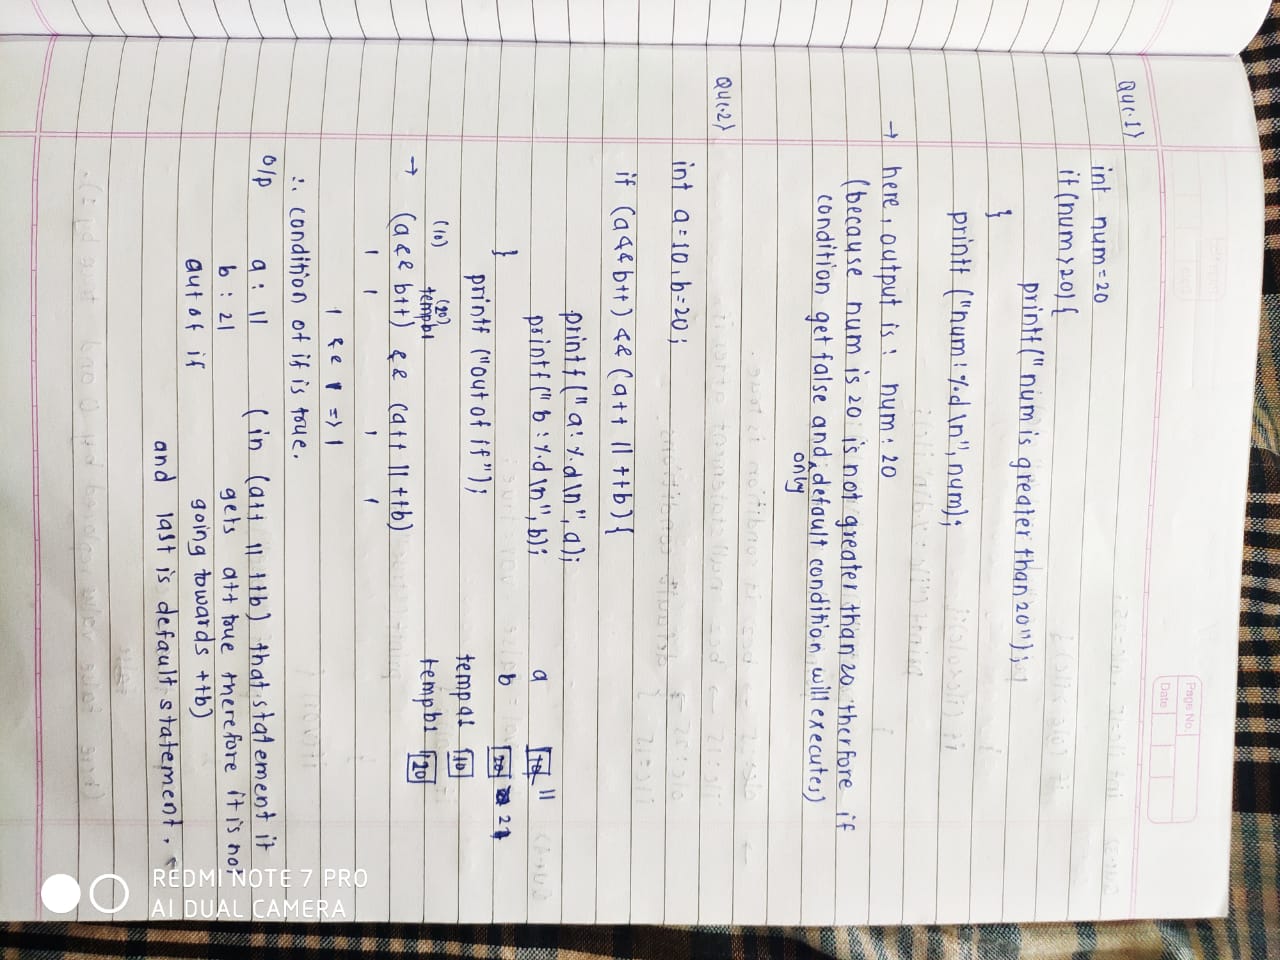 Page No.
Date
Que.1)
int num=20
if(num>20){
printf("num is greater than 20");
}
printf("num:%d\n",num);
→ here, output is: num:20
(because num is 20 is not greater than 20 therfore if
condition get false and only default condition will executes)
Que.2)
int a=10, b=20;
if (a&&b++) && (a++ || ++b){
printf("a:%d\n",a);
printf("b:%d\n",b);
}
printf("out of if");
a 10 11
b 20 21
temp a1 10
temp b1 20
(10) (20)
temp b1
→ (a&& b++) && (a++ || ++b)
1 1 1 1
1 && 1 => 1
∴ condition of if is true.
o/p a: 11 (in (a++ || ++b) that statement it
b: 21 gets a++ true therefore it is not
out of if going towards ++b)
and last is default statement.
REDMI NOTE 7 PRO
AI DUAL CAMERA